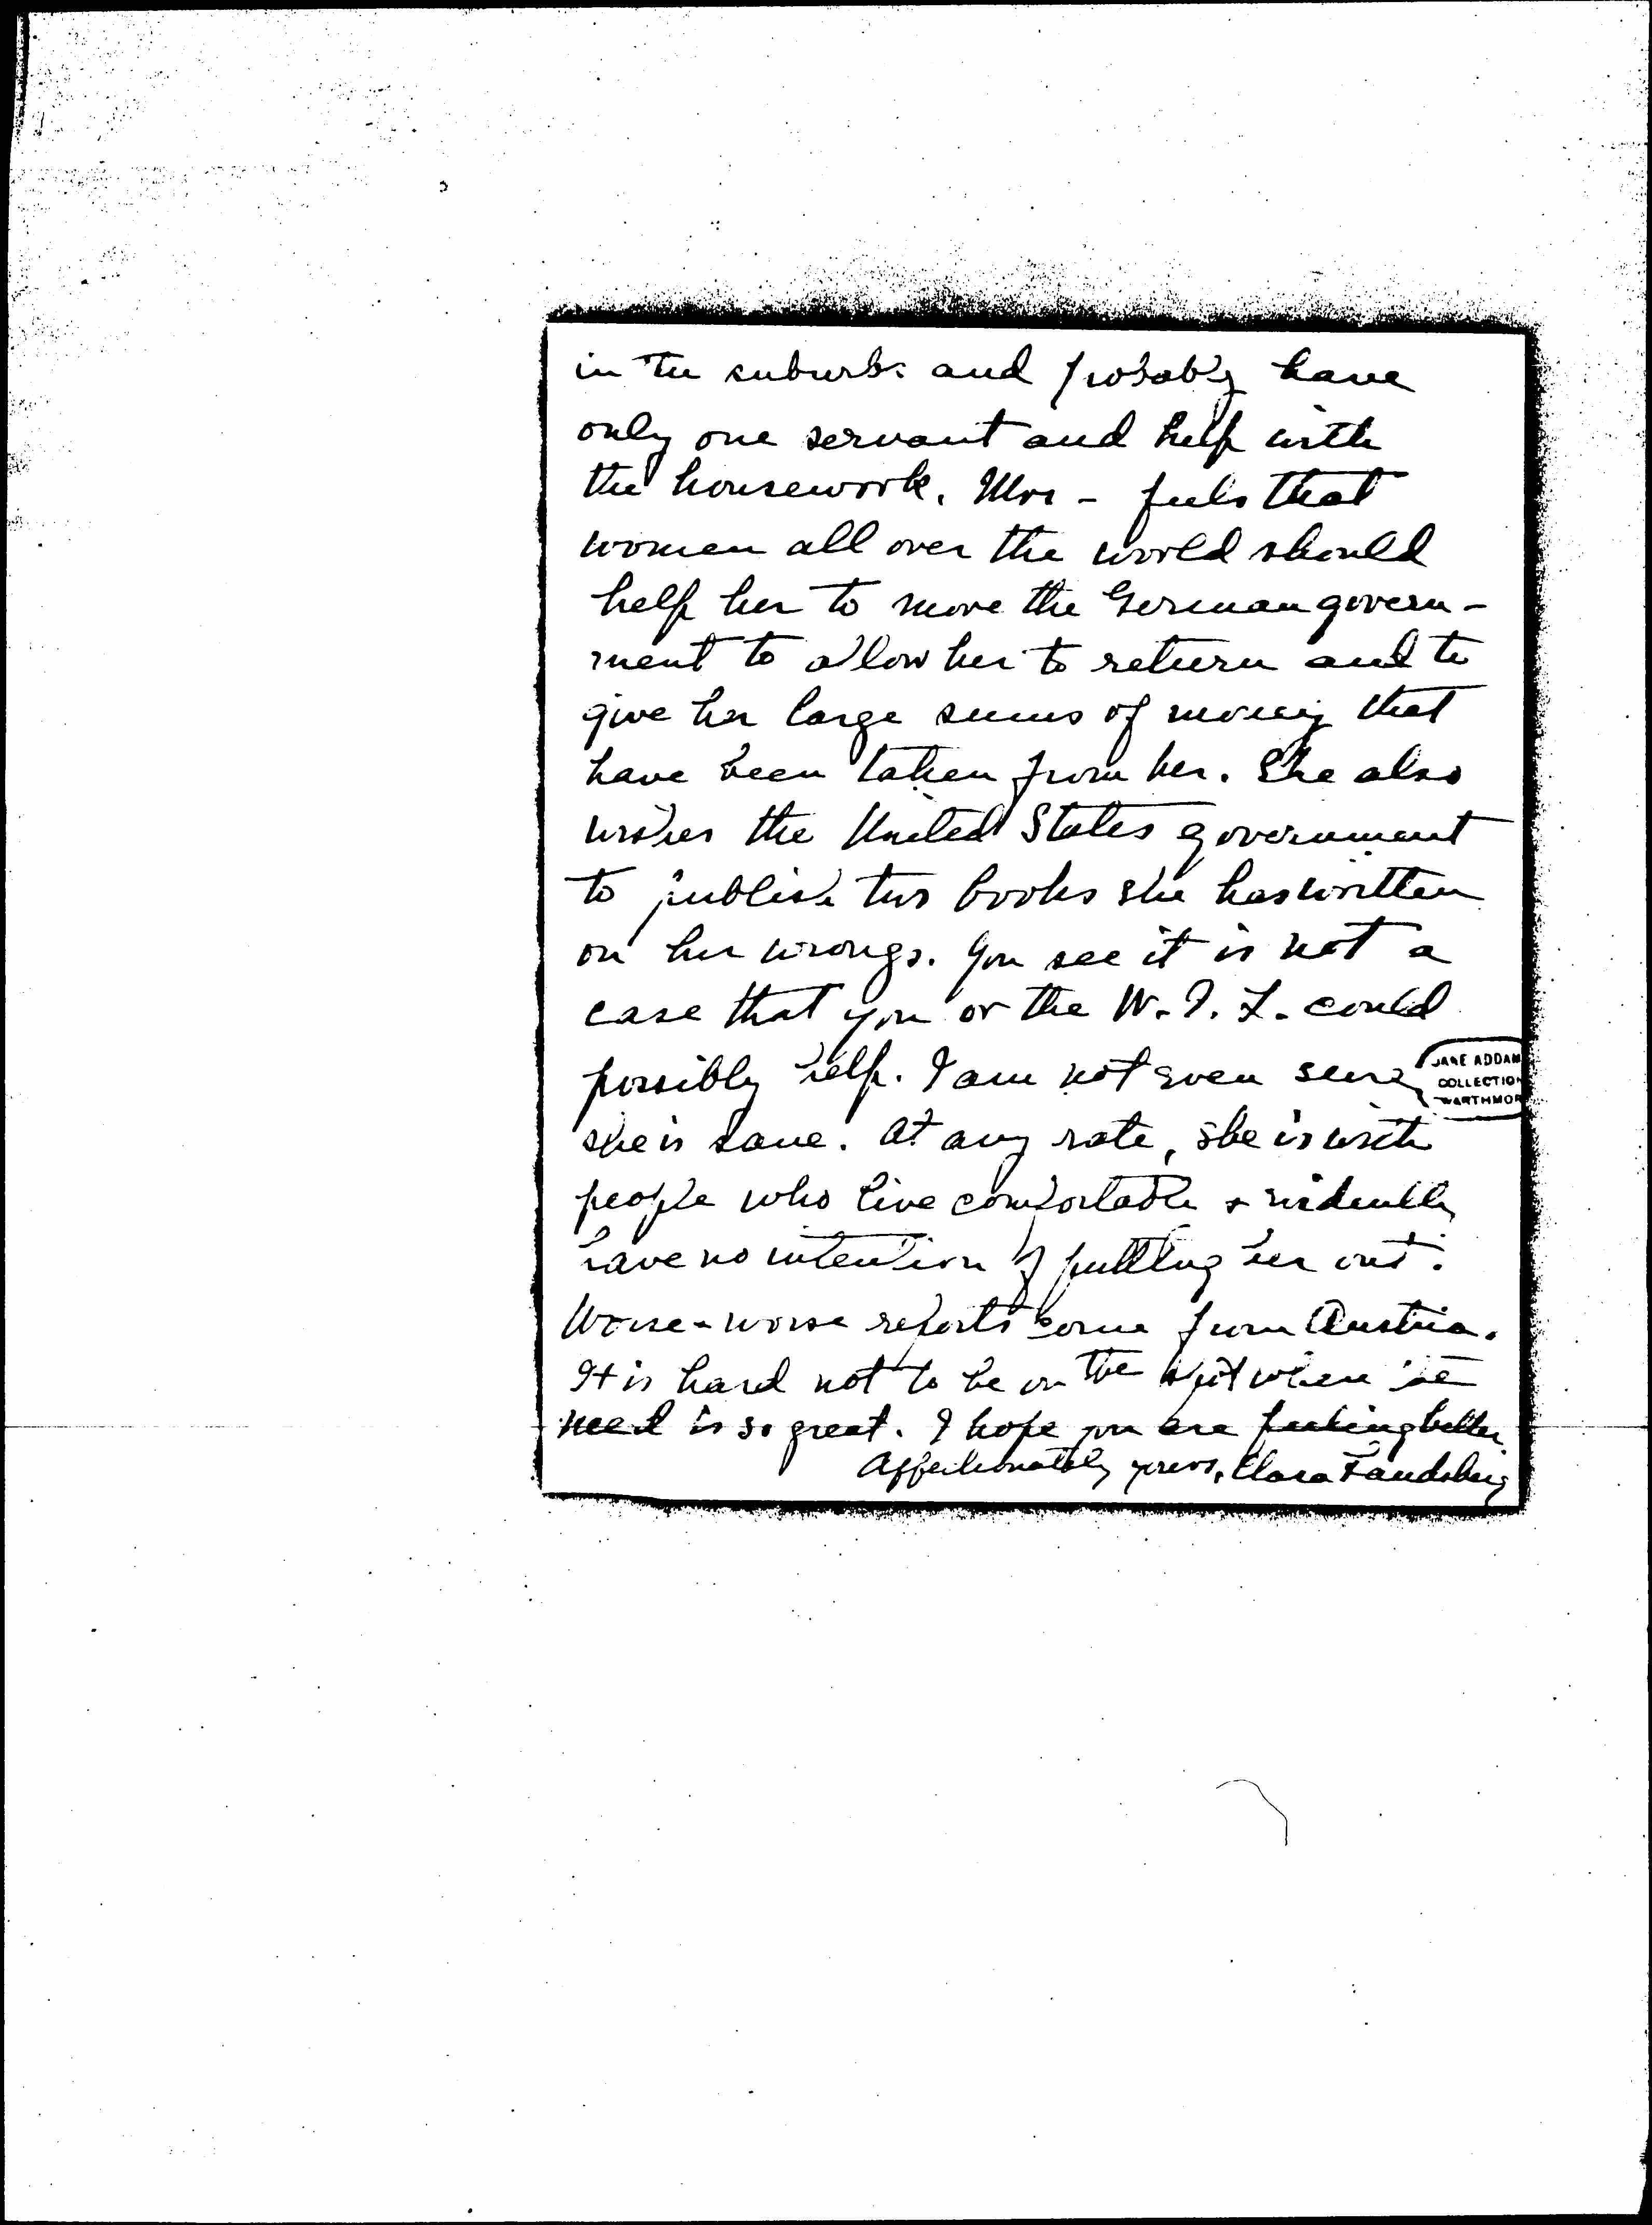 in the suburbs and probably have
only one servant and help with
the housework. Mrs - feels that
women all over the world should
help her to move the German govern-
ment to allow her to return and to
give her large sums of money that
have been taken from her. She also
wishes the United States government
to publish two books she has written
on her wrongs. You see it is not a
case that you or the W. I. L. could
possibly help. I am not even sure
JANE ADDAM
COLLECTION
WARTHMOR
she is sane. At any rate, she is with
people who live comfortably & evidently
have no intention of putting her out.
Worse & worse reports come from Austria.
It is hard not to be on the spot when the
need is so great. I hope you are feeling better.
Affectionately yours, Clara Landsberg